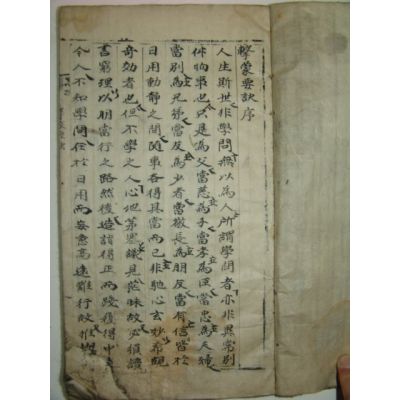 擊蒙要訣序
人生斯世非學問無以為人所謂學問者亦非異常別
件物事也只是為父當慈為子當孝為臣當忠為夫婦
當別為兄弟當友為少者當敬長為朋友當有信皆於
日用動靜之間随事各得其當而已非馳心玄妙希覬
奇効者也但不學之人心地茅塞識見茫昧故必須讀
書窮理以明當行之路然後造詣得正而踐履得中
今人不知學問在於日用而妄意高遠難行故推